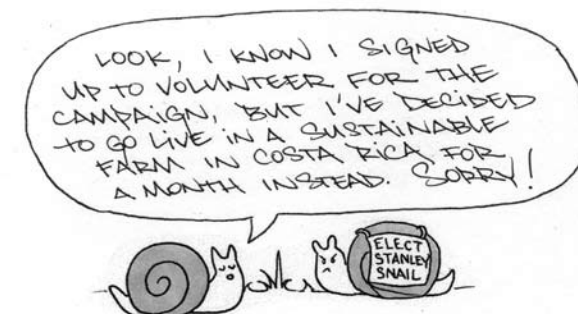 LOOK, I KNOW I SIGNED
UP TO VOLUNTEER FOR THE
CAMPAIGN, BUT I'VE DECIDED
TO GO LIVE IN A SUSTAINABLE
FARM IN COSTA RICA FOR
A MONTH INSTEAD. SORRY!
ELECT
STANLEY
SNAIL